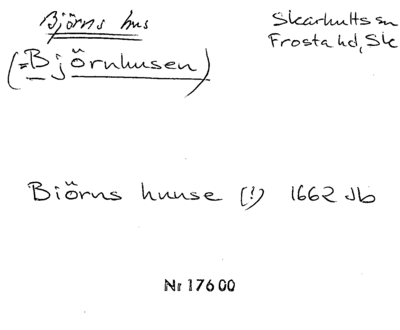 Björns hus
(=Björnhusen)
Skarhults sn
Frosta hd, Sk
Biörns huuse (!) 1662 Jb
Nr 17600